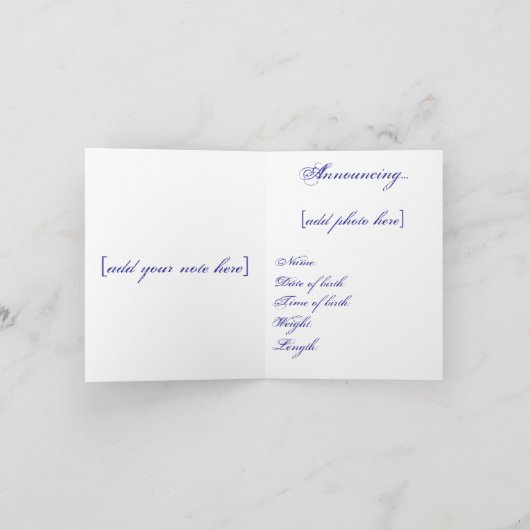 [add your note here]
Announcing...
[add photo here]
Name:
Date of birth:
Time of birth:
Weight:
Length: